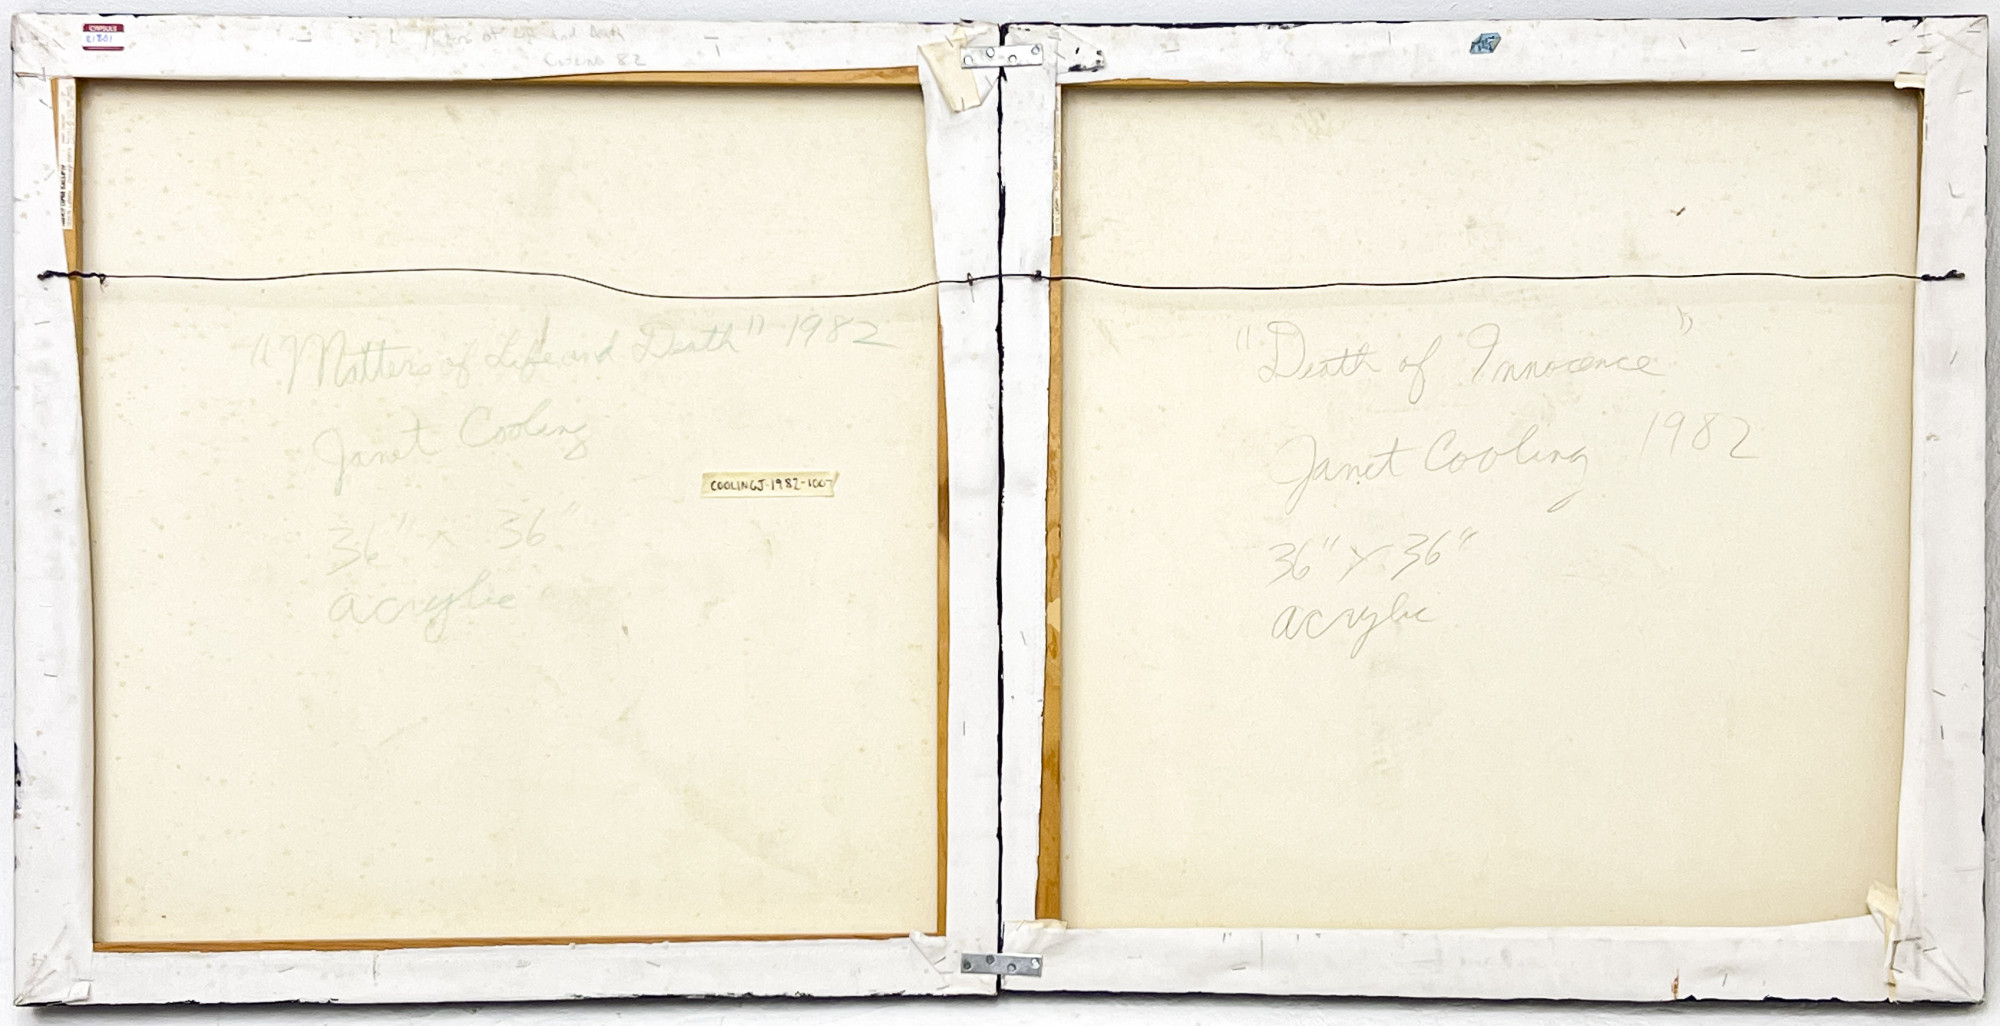 21801
Matters of Life and Death
Cooling 82
"Matters of Life and Death" 1982
Janet Cooling
36" x 36"
acrylic
COOLINGJ-1982-1007
"Death of Innocence"
Janet Cooling 1982
36" x 36"
acrylic